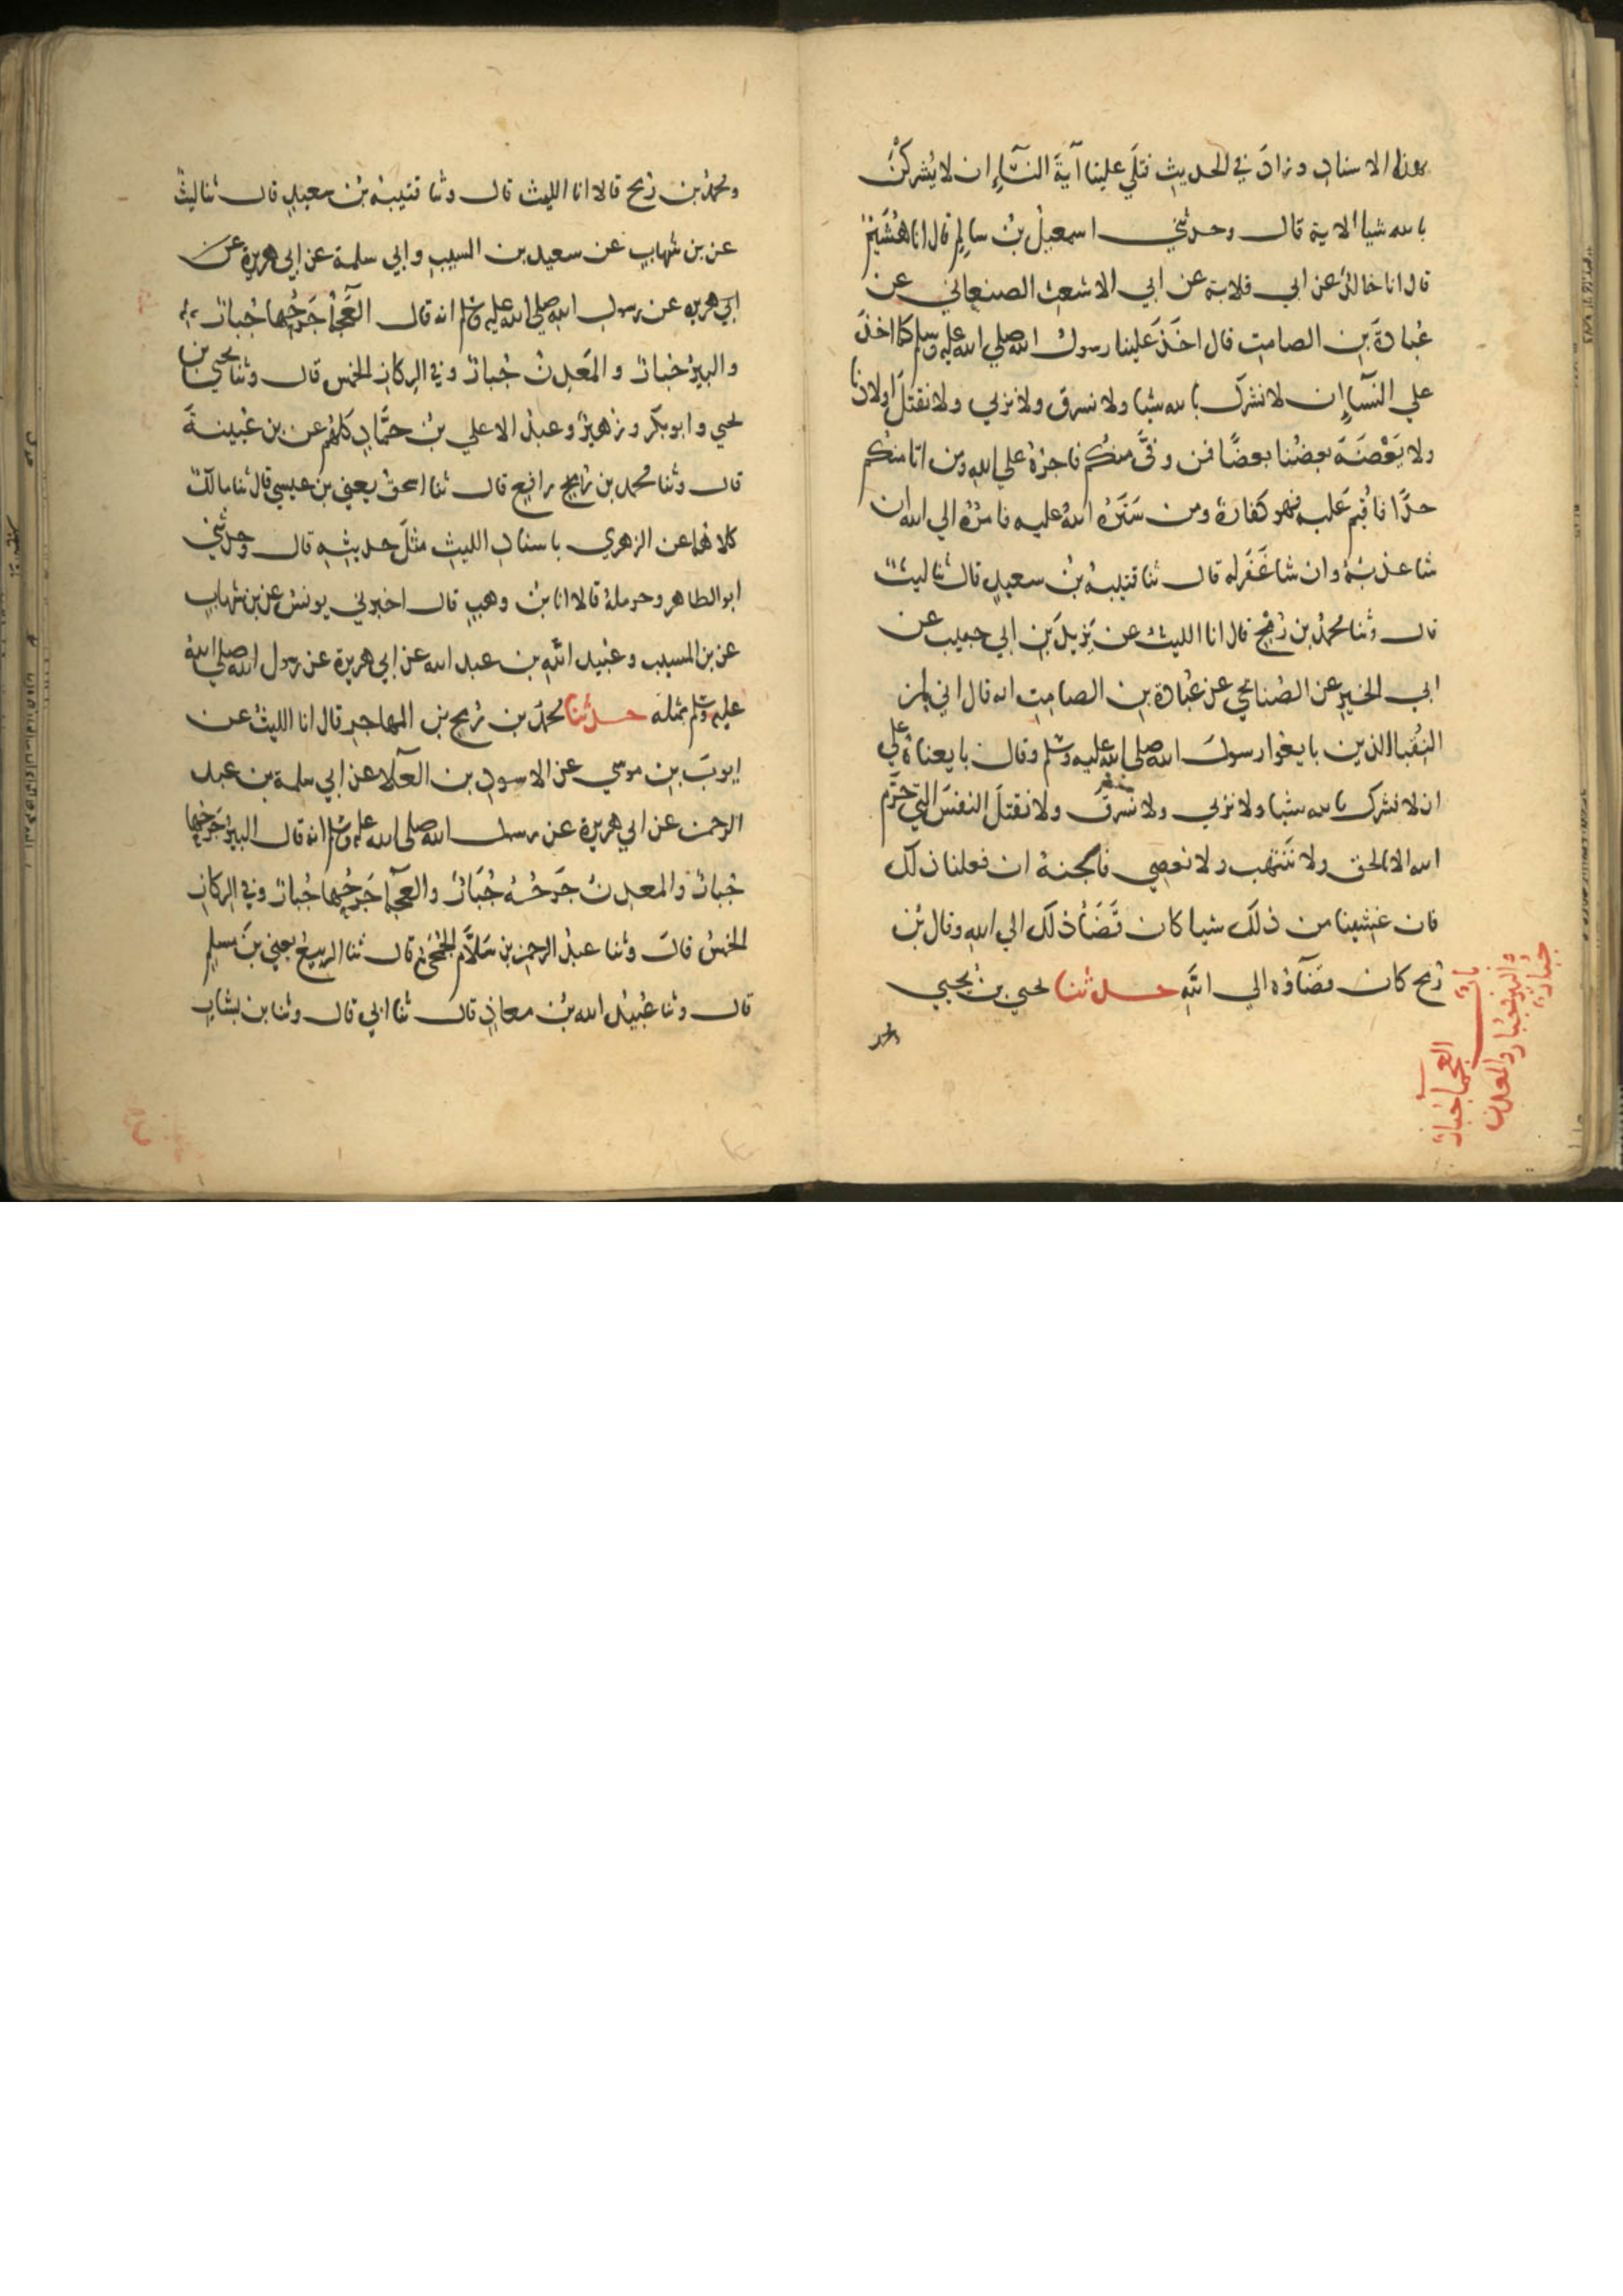 بهذا الاسناد وزادَ في الحديث فتلَي علينا آيةَ النسَّاءِ ان لا يُشركنَ
بالله شيا الاية قال وحدثني اسمعيلُ بنُ سالِمٍ قال انا هُشَيْمٌ
قال انا خالدٌ عن ابي قلابة عن ابي الاشعث الصنعاني عن
عُبادةَ بنِ الصامت قال اخَذَ عَلينا رسولُ الله صلي الله عليه وسلم كما اخذَ
علي النسآءِ ان لا نشرك بالله شيا ولا نسرق ولا نزني ولا نقتلَ اولادنا
ولا يَعْضَهَ بعضُنا بعضًا فمن وفَّي منكم فاجرُهُ علي اللهِ ومن اتا منكم
حدًّا فاُقيمَ عَليه فهو كفارةٌ ومن سَتَرَهُ اللهُ عليه فامرُهُ الي الله ان
شا عذبَهُ وان شا غَفَرله قال ثنا قتيبةُ بنُ سعيدٍ قال ثنا ليثٌ
قال وثنا محمدُ بن رُمْحٍ قال انا الليثُ عن يَزيدَ بنِ ابي حبيب عن
ابي الخيرِ عن الصُنابحي عن عُبادة بنِ الصامِتِ انه قال اني لمن
النُقَبا الذين بايعُوا رسولَ الله صلي الله عليه وسلم وقال بايعناهُ علي
ان لا نشرك بالله شيا ولا نزني ولا نسرقَ ولا نقتلَ النفسَ التي حَرَّم
الله الا بالحق ولا نَنْتَهِب ولا نعصِي فالجنةُ ان فعلنا ذلك
فان غَشِينا من ذلكَ شيا كان قَضَآُ ذلك الي اللهِ وقال بْنُ
رُمح كان قضَآؤه الي اللهِ حدثنا يحيي بنُ يحيي
باب
العجمآ جُبارٌ
والبيرُ جُبارٌ والمعدن
جُبارٌ
ومحمدُ
ومحمدُ بن رُمح قالا انا الليث قال وثنا قتيبةُ بنُ سعيدٍ قال ثنا ليثٌ
عن بن شهابٍ عن سعيد بن المسيبِ وابي سلمة عن ابي هريرة عن
ابي هريره عن رسول الله صلي الله عليه وسلم انه قال العَجمآُ جَرحُها جُبارٌ
والبيرُ جُبارٌ والمَعدِنُ جُبارٌ وفي الرِكازِ الخمس قال وثنا يحيي بن
يحيي وابو بكر وزهيرٌ وعبدُ الاعلي بنُ حمَّادٍ كلهُم عن بن عُيينةَ
قال وثنا محمد بن رافع قال ثنا اسحقُ يعني بن عيسي قال ثنا مالكٌ
كلاهُما عن الزهري باسنادِ الليثِ مثلَ حديثِه قال وحدثني
ابو الطاهر وحرملةُ قالا انا بنُ وهبٍ قال اخبرني يونسُ عن بن شهابٍ
عن بن المسيب وعُبيد اللهِ بن عبد الله عن ابي هريرة عن رسول الله صلي اللهُ
عليه وسلم بمثله حدثنا محمدُ بن رُمح بنِ المهاجرِ قال انا الليثُ عن
ايوبَ بنِ موسي عن الاسودِ بن العلآ عن ابي سلمة بن عبد
الرحمن عن ابي هريرةَ عن رسول الله صلي الله عليه وسلم انه قال البيرُ جَرحُها
جُبارٌ والمعدِنُ جَرحُهُ جُبَارٌ والعَجمآُ جَرحُها جُبارٌ وفي الرِكازِ
الخمسُ قال وثنا عبدُ الرحمن بن سَلاَّمٍ الجُمَحيُّ قال ثنا الربيعُ يعني بنَ مسلم
قال وثنا عُبيدُ الله بنُ معاذٍ قال ثنا ابي قال وثنا بن بشارٍ